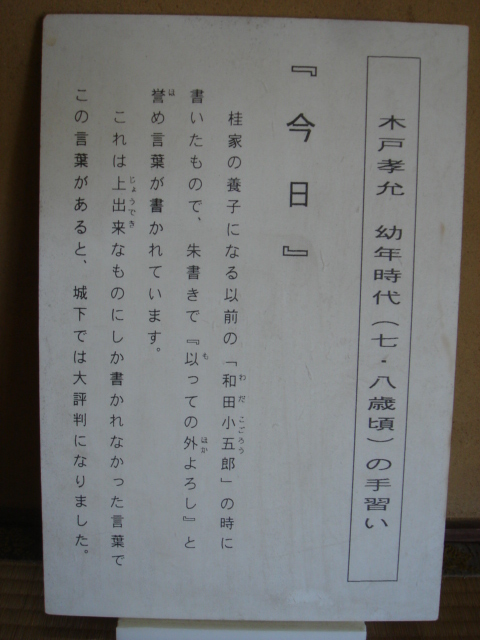 木戸孝允　幼年時代（七・八歳頃）の手習い
『今日』
桂家の養子になる以前の「和田小五郎」の時に
わだこごろう
書いたもので、朱書きで『以っての外よろし』と
もほか
誉め言葉が書かれています。
ほ
これは上出来なものにしか書かれなかった言葉で
じょうでき
この言葉があると、城下では大評判になりました。